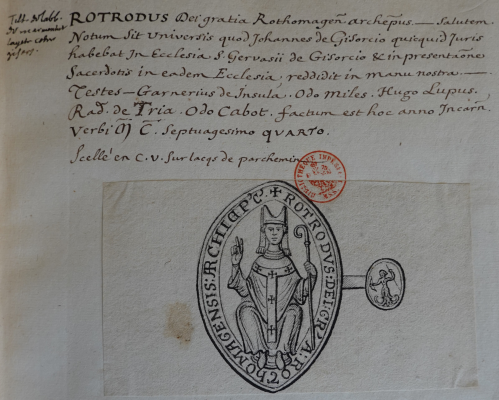 ROTRODUS Dei gratia Rothomagen̄ archep̄us — Salutem.
Notum Sit Universis quod Johannes de Gisorcio quicquid Juris
habebat In Ecclesia S. Gervasii de Gisorcio & in presentatiōne
Sacerdotis in eadem Ecclesia, reddidit in manu nostra. —
Testes — Garnerius de Insula. Odo Miles. Hugo Lupus.
Rad. de Tria. Odo Cabot. factum est hoc anno Incarn̄.
Verbi M̄ C̄. Septuagesimo QUARTO.
Scellé en C. V. Sur lacqs de parchemin
✝ ROTRODVS: DEI: GR̄A: ROTHOMAGENSIS: ARCHIEP̄C